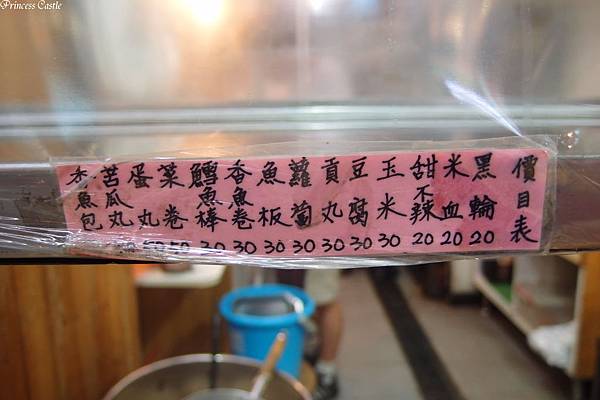 Princess Castle
價目表
黑輪 20
米血 20
甜不辣 20
玉米 30
豆腐 30
貢丸 30
蘿蔔 30
魚板 30
香魚卷 30
鱈魚棒 30
菜卷
蛋丸
苦瓜丸
魚包